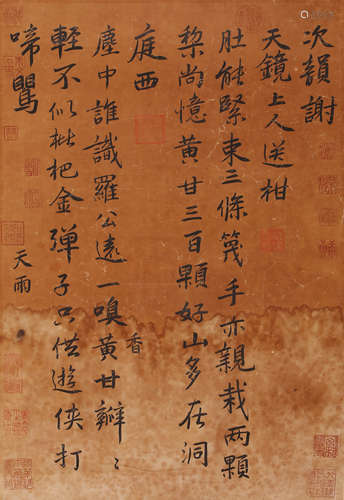 次韻謝
天鏡上人送柑
肚皮緊束三條篾手亦親栽兩顆
黎尚憶黃甘三百顆好山多在洞
庭西
塵中誰識羅公遠一嗅黃甘瓣〻香
輕不似枇杷金彈子只供遊俠打
啼鶯
天雨